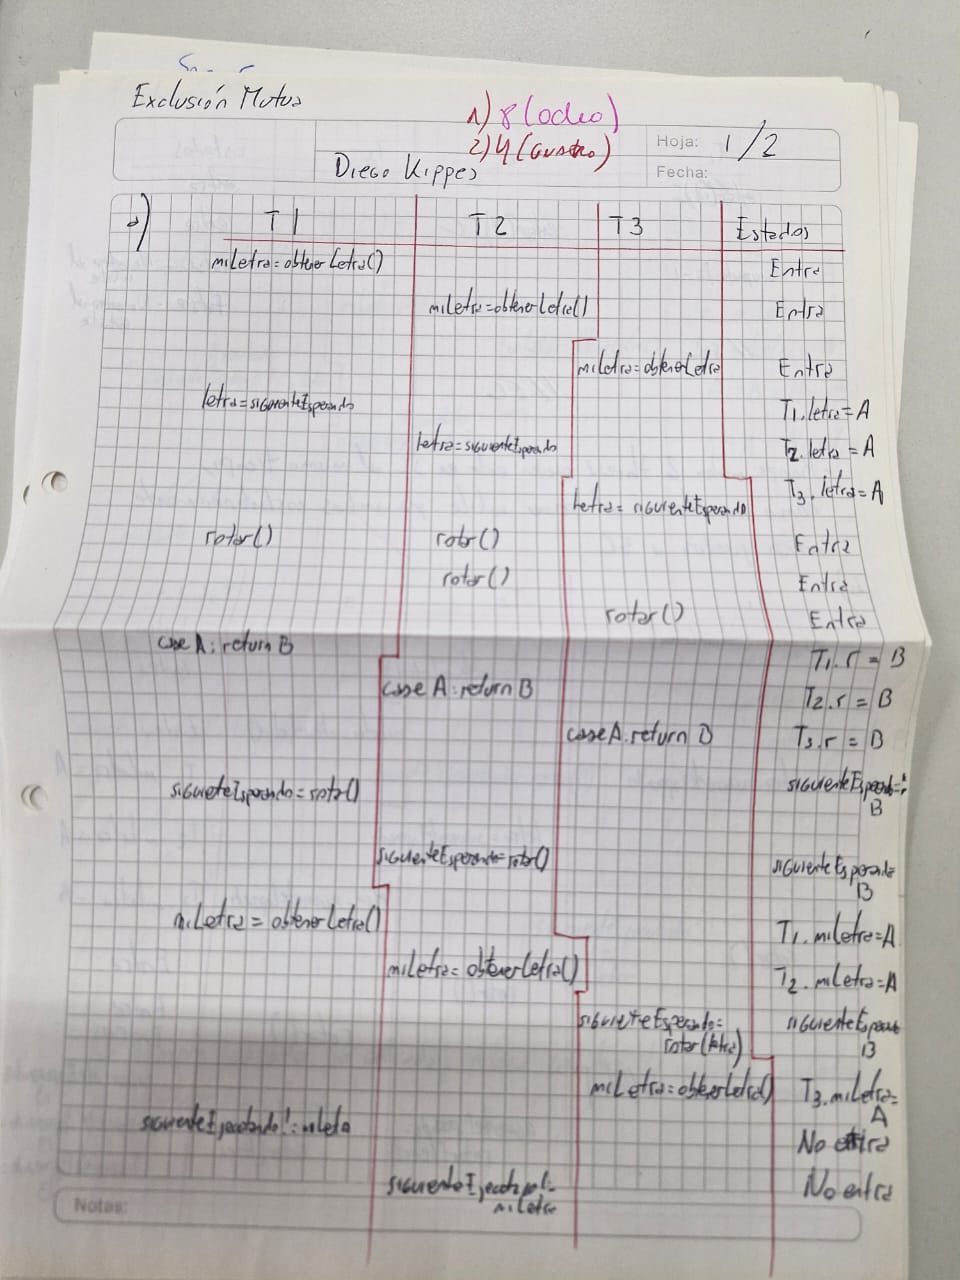 Exclusión Mutua
1) 8 (ocho)
2) 4 (cuatro)
Hoja: 1/2
Diego Kippes
Fecha:
a)
T1 T2 T3 Estados
miLetra=obtenerLetra() Entra
miLetra=obtenerLetra() Entra
miLetra=obtenerLetra Entra
letra=siguienteEsperado T1.letra=A
letra=siguienteEsperado T2.letra=A
letra=siguienteEsperado T3.letra=A
rotar() rotar() Entra
rotar() Entra
rotar() Entra
case A: return B T1.r = B
case A: return B T2.r = B
case A: return B T3.r = B
siguienteEsperado=rotar() siguienteEsperado=
B
siguienteEsperado=rotar() siguienteEsperado
B
miLetra = obtenerLetra() T1.miLetra=A
miLetra= obtenerLetra() T2.miLetra=A
siguienteEsperado= siguienteEsperado
rotar(letra) B
miLetra=obtenerLetra() T3.miLetra=
A
No entra
No entra
miLetra
Notas: